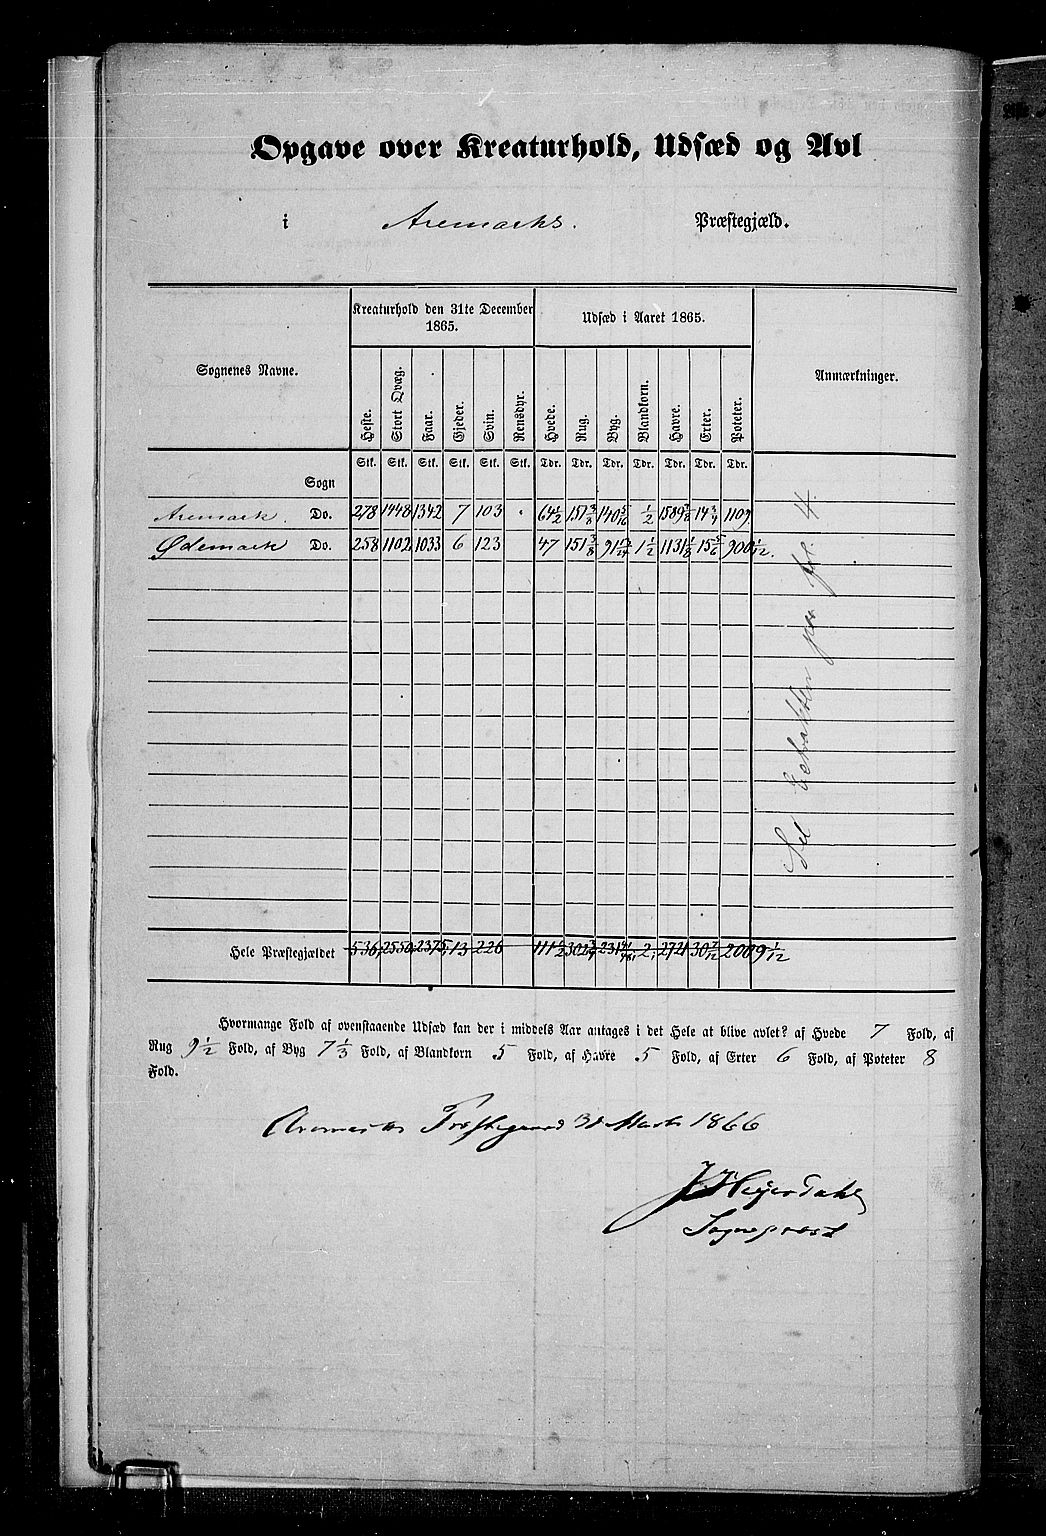 Opgave over Kreaturhold, Udsæd og Avl
i Aremarks. Præstegjæld.
Sognenes Navne. Kreaturhold den 31te December 1865. Udsæd i Aaret 1865. Anmærkninger.
Heste. Stort Qvæg. Faar. Gjeder. Svin. Rensdyr. Hvede. Rug. Byg. Blandkorn. Havre. Erter. Poteter.
Stk. Stk. Stk. Stk. Stk. Stk. Tdr. Tdr. Tdr. Tdr. Tdr. Tdr. Tdr.
Sogn
Aremark. Do. 278 1448 1342 7 103 64½ 151⅜ 140 5/16 ½ 1589⅞ 14¾ 1109.
Ødemark Do. 258 1102 1033 6 123 47 151⅜ 91 1½ 1131⅛ 15⅚ 900 1/12.
fol. 4.
Hele Præstegjældet 536, 2550, 2375, 13 226 111½ 302¾ 231 2, 2721 30 7/12 2009 1/12
Hvormange Fold af ovenstaaende Udsæd kan der i middels Aar antages i det Hele at blive avlet? af Hvede 7 Fold, af
Rug 9½ Fold, af Byg 7⅓ Fold, af Blandkorn 5 Fold, af Havre 5 Fold, af Erter 6 Fold, af Poteter 8
Fold.
Aremarks Præstegaard 31 Marts 1866
Heyerdahl
Sognepræst